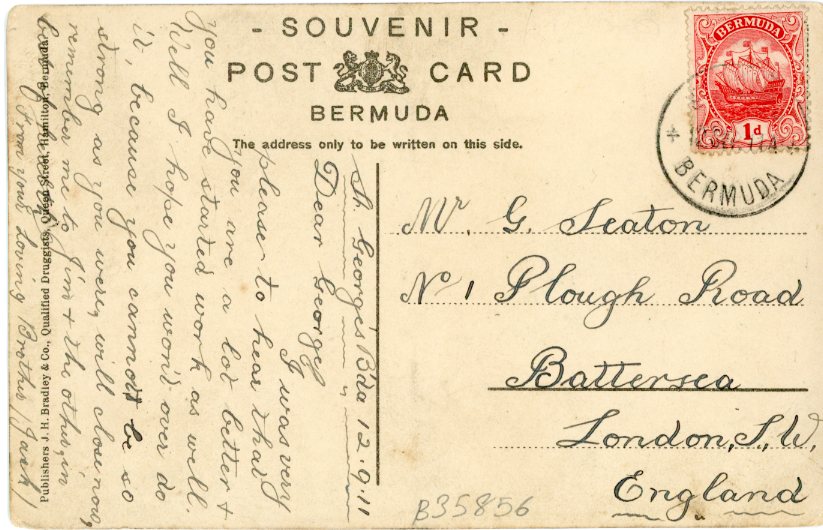 - SOUVENIR -
POST CARD
BERMUDA
The address only to be written on this side.
BERMUDA
1d
BERMUDA
St. George's Bda 12.9.11
Dear George
I was very
please to hear that
you are a lot better &
you have started work as well.
Well I hope you won't over do
it, because you cannot be so
strong as you were, will close now,
remember me to Jim & the other, in
From your Loving Brother Jack
Publishers J. H. Bradley & Co., Qualified Druggists, Queen Street, Hamilton, Bermuda.
Mr. G. Seaton
No 1 Plough Road
Battersea
London, S.W,
England
B35856